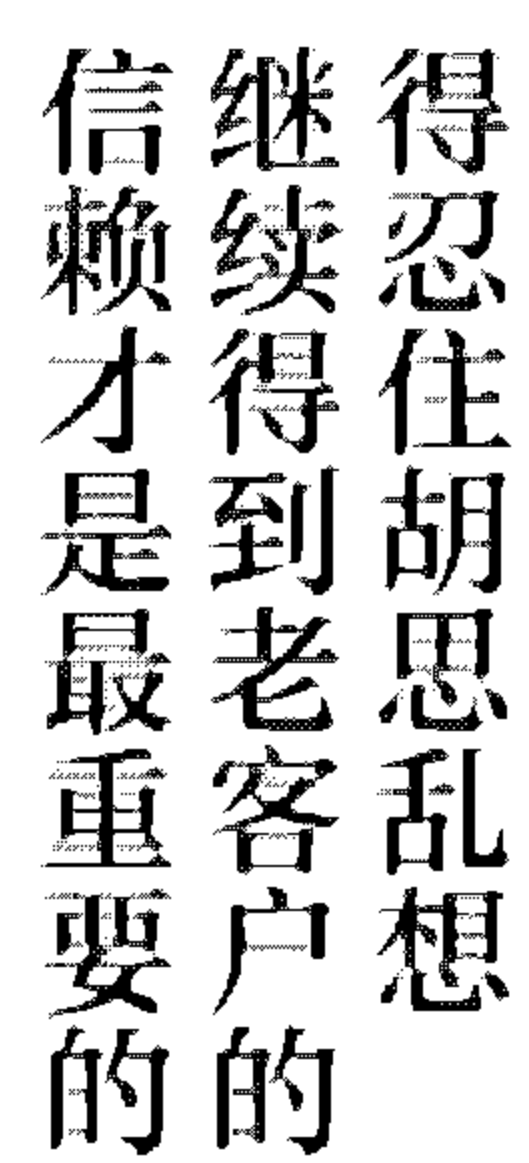 得忍住胡思乱想
继续得到老客户的
信赖才是最重要的